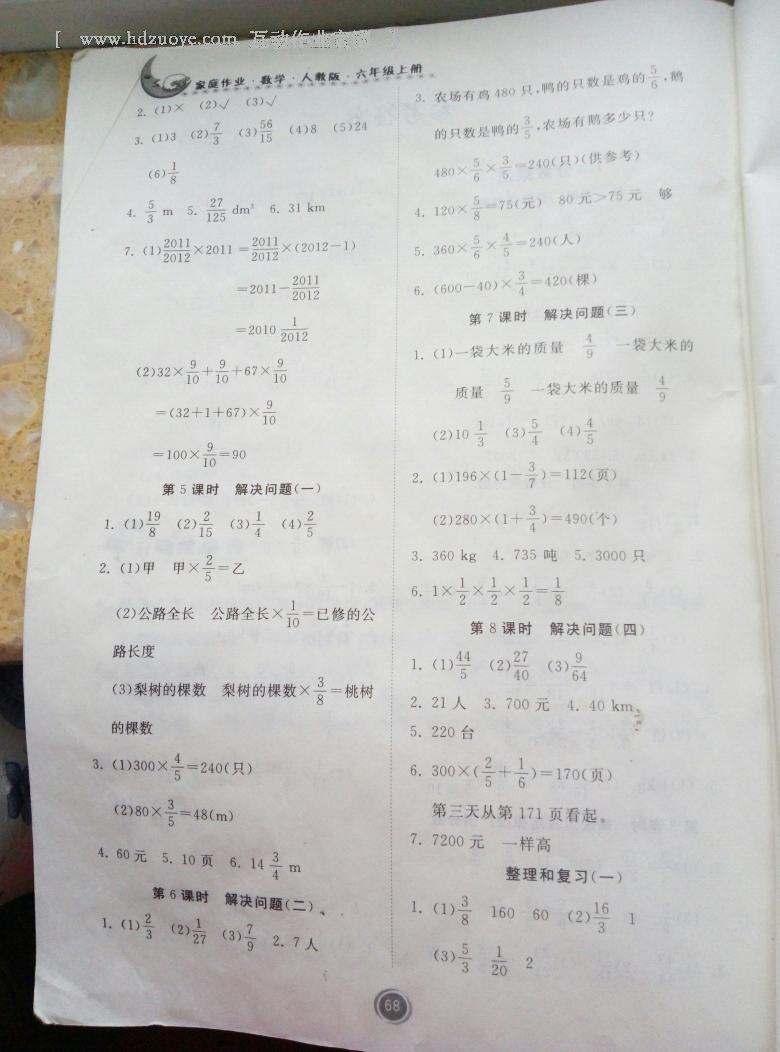 [ www.hdzuoye.com
家庭作业·数学·人教版·六年级上册
2. (1)× (2)√ (3)√
3. (1)3 (2)7/3 (3)56/15 (4)8 (5)24
(6)1/8
4. 5/3 m 5. 27/125 dm³ 6. 31 km
7. (1)2011/2012×2011=2011/2012×(2012-1)
=2011-2011/2012
=2010 1/2012
(2)32×9/10+9/10+67×9/10
=(32+1+67)×9/10
=100×9/10=90
第5课时 解决问题(一)
1. (1)19/8 (2)2/15 (3)1/4 (4)2/5
2. (1)甲 甲×2/5=乙
(2)公路全长 公路全长×1/10=已修的公
路长度
(3)梨树的棵数 梨树的棵数×3/8=桃树
的棵数
3. (1)300×4/5=240(只)
(2)80×3/5=48(m)
4. 60元 5. 10页 6. 14 3/4 m
第6课时 解决问题(二)
1. (1)2/3 (2)1/27 (3)7/9 2. 7人
3. 农场有鸡480只,鸭的只数是鸡的5/6,鹅
的只数是鸭的3/5,农场有鹅多少只?
480×5/6×3/5=240(只)(供参考)
4. 120×5/8=75(元) 80元>75元 够
5. 360×5/6×4/5=240(人)
6. (600-40)×3/4=420(棵)
第7课时 解决问题(三)
1. (1)一袋大米的质量 4/9 一袋大米的
质量 5/9 一袋大米的质量 4/9
(2)10 1/3 (3)5/4 (4)4/5
2. (1)196×(1-3/7)=112(页)
(2)280×(1+3/4)=490(个)
3. 360 kg 4. 735吨 5. 3000只
6. 1×1/2×1/2×1/2=1/8
第8课时 解决问题(四)
1. (1)44/5 (2)27/40 (3)9/64
2. 21人 3. 700元 4. 40 km
5. 220台
6. 300×(2/5+1/6)=170(页)
第三天从第171页看起。
7. 7200元 一样高
整理和复习(一)
1. (1)3/8 160 60 (2)16/3 1
(3)5/3 1/20 2
68